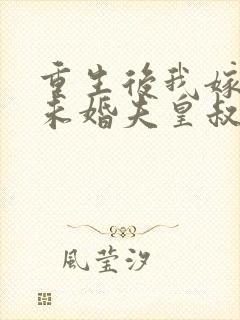 重生後我嫁
未婚夫皇叔
風莹汐